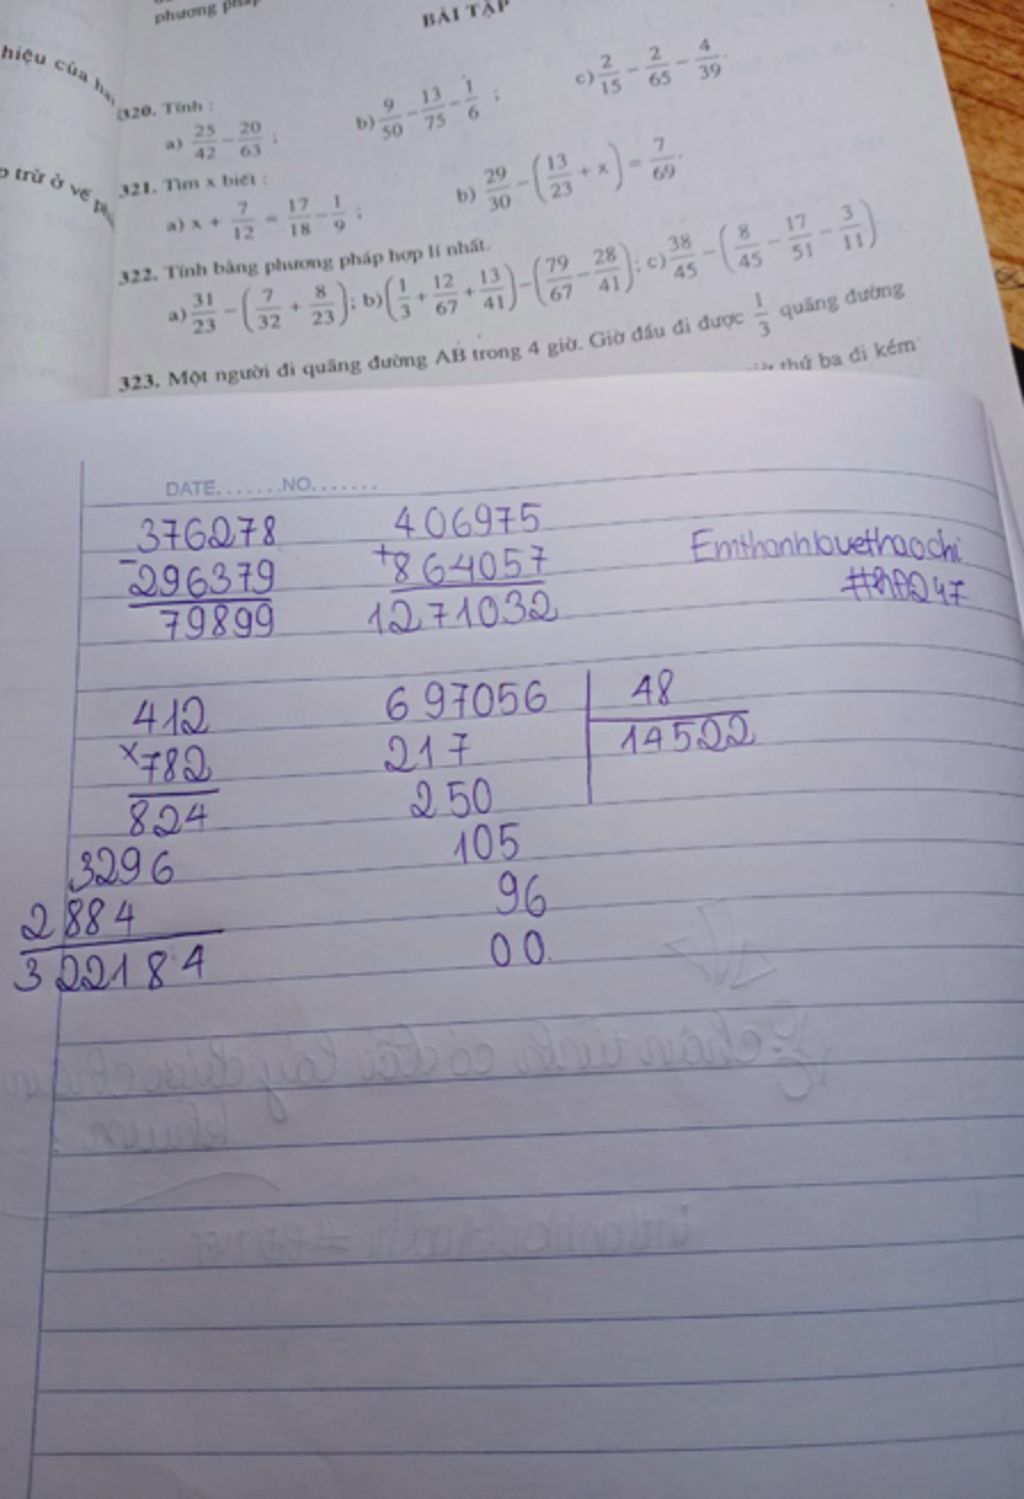 phương pháp
BÀI TẬP
hiệu của hai
320. Tính :
a) 25/42 - 20/63 ; b) 9/50 - 13/75 - 1/6 ; c) 2/15 - 2/65 - 4/39.
ở trừ ở vế
321. Tìm x biết :
a) x + 7/12 = 17/18 - 1/9 ; b) 29/30 - (13/23 + x) = 7/69.
322. Tính bằng phương pháp hợp lí nhất.
a) 31/23 - (7/32 + 8/23); b) (1/3 + 12/67 + 13/41) - (79/67 - 28/41); c) 38/45 - (8/45 - 17/51 - 3/11)
323. Một người đi quãng đường AB trong 4 giờ. Giờ đầu đi được 1/3 quãng đường
thứ ba đi kém
DATE.......NO.......
376278 406975
- 296379 + 864057 Emthanhlovethaochi
79899 1271032
412 697056 48
x 782 217 14522
824 250
3296 105
2884 96
322184 00